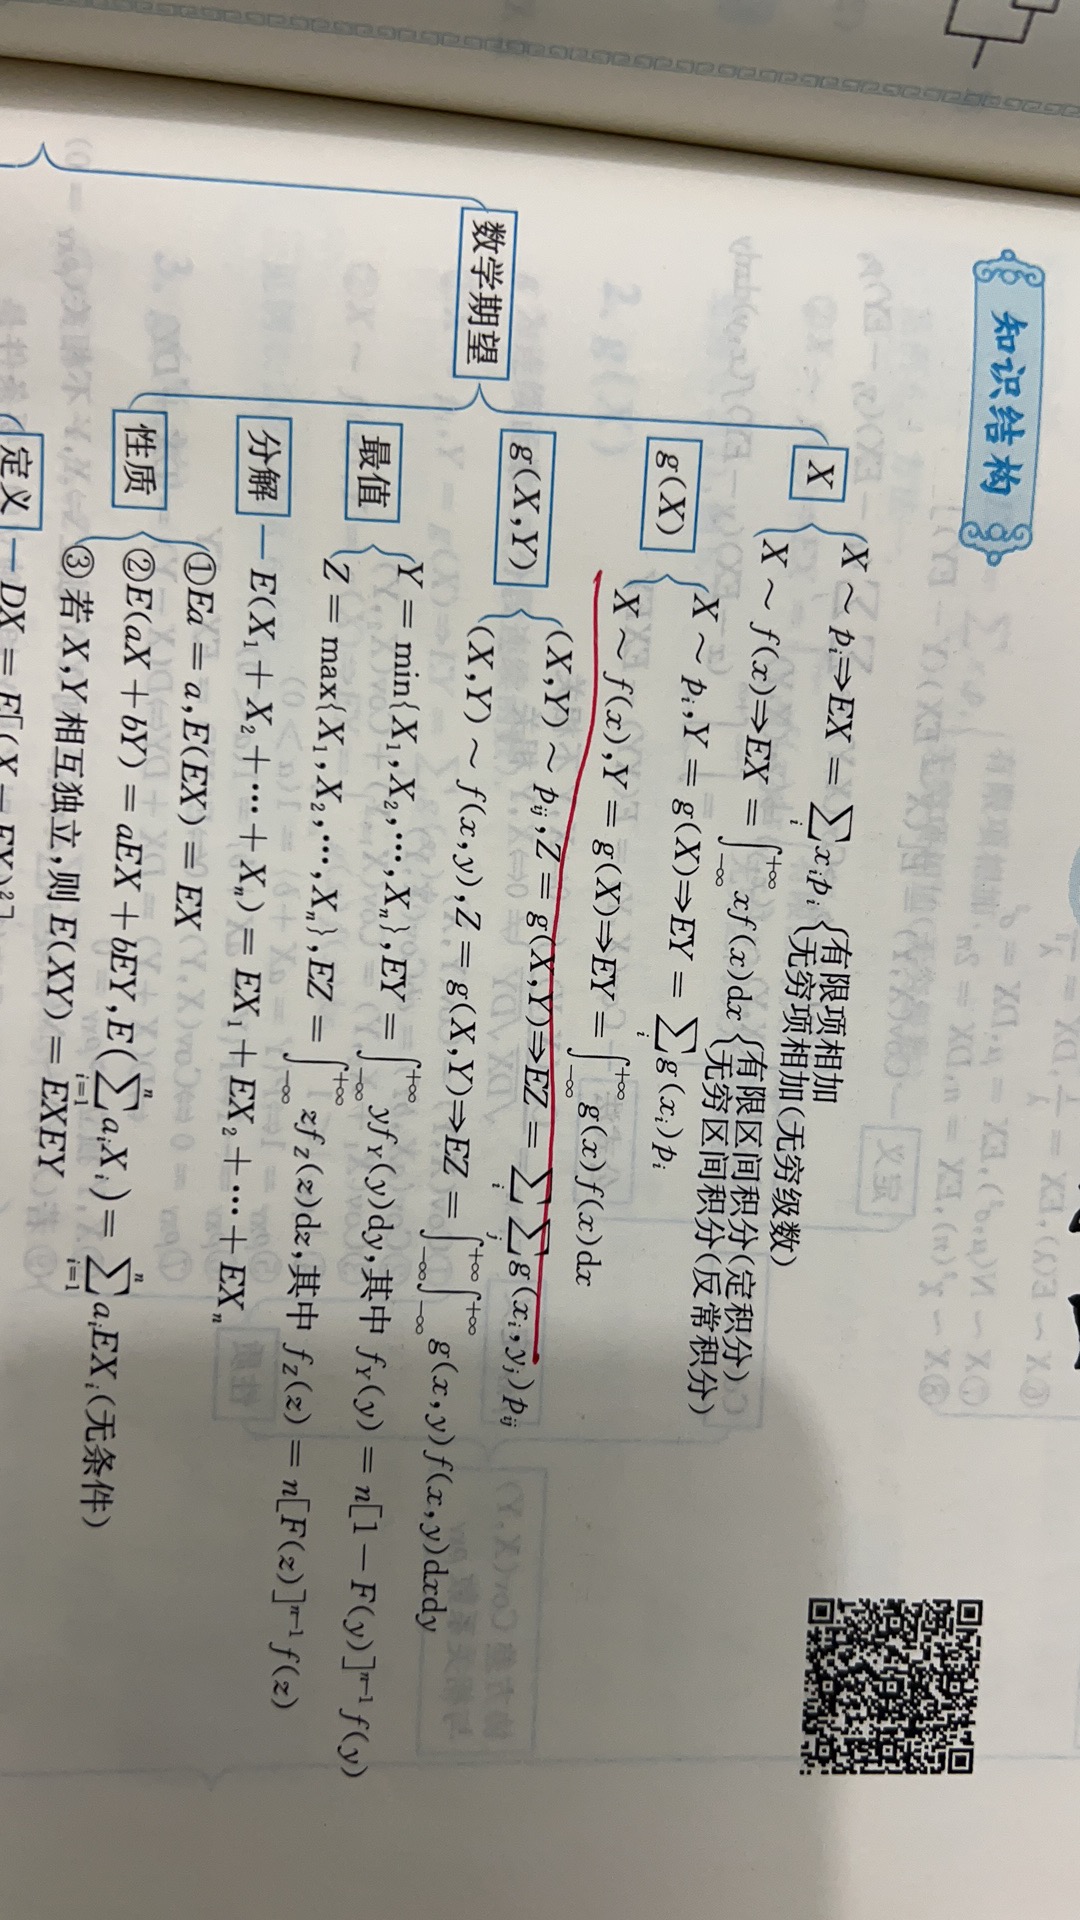 知识结构
数学期望
X
X ~ p_i ⇒ EX = ∑_i x_i p_i {有限项相加
无穷项相加(无穷级数)
X ~ f(x) ⇒ EX = ∫_{-∞}^{+∞} xf(x)dx {有限区间积分(定积分)
无穷区间积分(反常积分)
g(X)
X ~ p_i, Y = g(X) ⇒ EY = ∑_i g(x_i)p_i
X ~ f(x), Y = g(X) ⇒ EY = ∫_{-∞}^{+∞} g(x)f(x)dx
g(X,Y)
(X,Y) ~ p_{ij}, Z = g(X,Y) ⇒ EZ = ∑_i ∑_j g(x_i, y_j)p_{ij}
(X,Y) ~ f(x,y), Z = g(X,Y) ⇒ EZ = ∫_{-∞}^{+∞} ∫_{-∞}^{+∞} g(x,y)f(x,y)dxdy
最值
Y = min{X_1, X_2, …, X_n}, EY = ∫_{-∞}^{+∞} yf_Y(y)dy, 其中 f_Y(y) = n[1 − F(y)]^{n-1} f(y)
Z = max{X_1, X_2, …, X_n}, EZ = ∫_{-∞}^{+∞} zf_Z(z)dz, 其中 f_Z(z) = n[F(z)]^{n-1} f(z)
分解 — E(X_1 + X_2 + … + X_n) = EX_1 + EX_2 + … + EX_n
性质
①Ea = a, E(EX) = EX
②E(aX + bY) = aEX + bEY, E(∑_{i=1}^{n} a_i X_i) = ∑_{i=1}^{n} a_i EX_i (无条件)
③若 X, Y 相互独立, 则 E(XY) = EXEY
定义 — DX = E[(X − EX)^2]